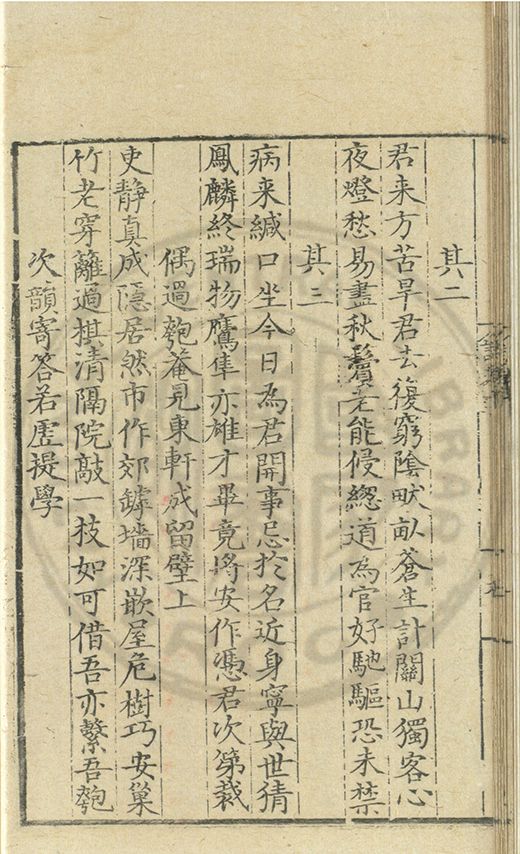 其二
君来方苦旱君去復窮陰畎畝蒼生計關山獨客心
夜燈愁易盡秋鬢老能侵緫道為官好馳驅恐未禁
其三
病来緘口坐今日為君開事忌於名近身寧與世猜
鳳麟終瑞物鷹隼亦雄才畢竟將安作憑君次第裁
偶過匏菴見東軒成留壁上
吏靜真成隱居然市作郊鏬墻深嵌屋危樹巧安巢
竹老穿籬過棋清隔院敲一枝如可借吾亦繫吾匏
次韻寄答若虛提學